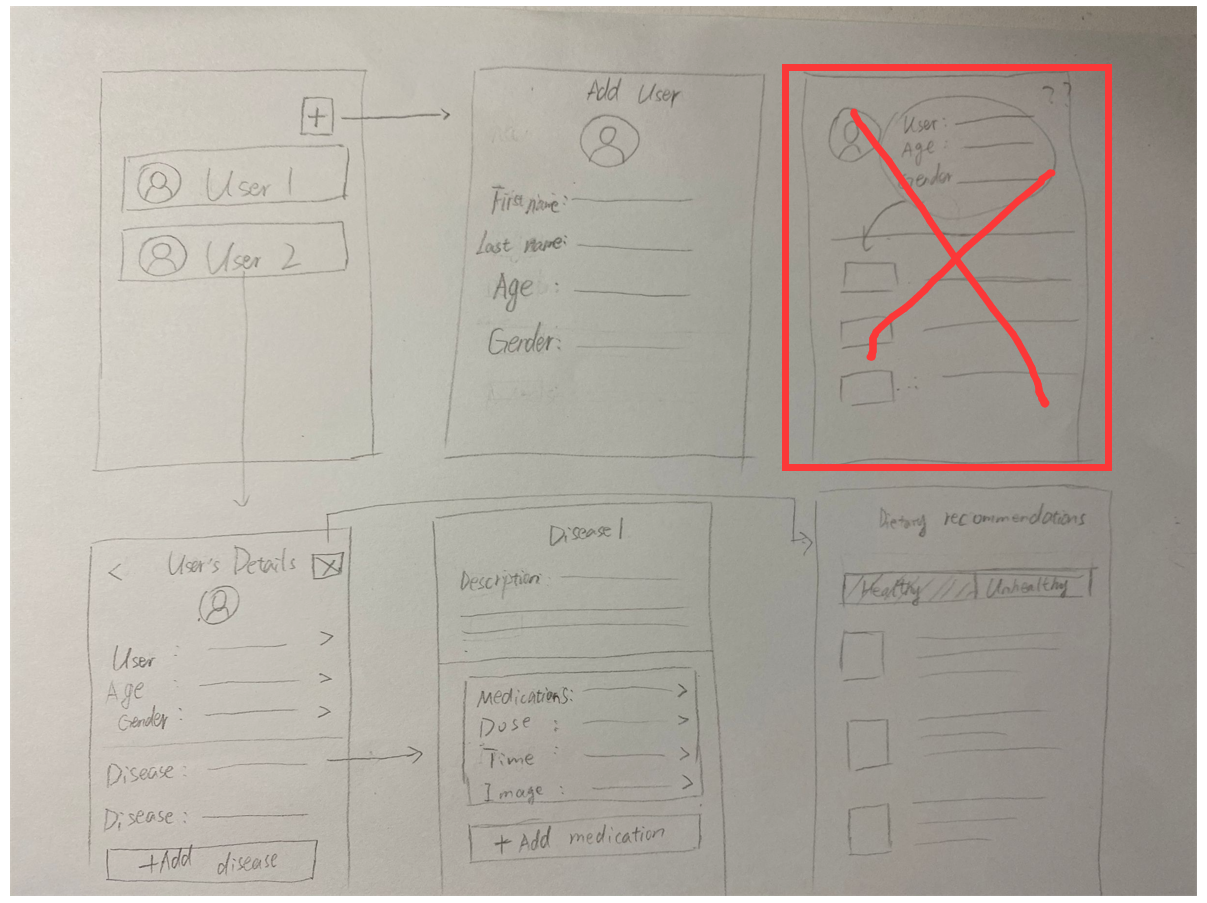 +
User 1
User 2
Add User
First name:
Last name:
Age :
Gender:
??
User:
Age :
Gender
< User's Details
User : >
Age : >
Gender : >
Disease :
Disease :
+Add disease
Disease 1
Description:
Medications: >
Dose : >
Time : >
Image : >
+ Add medication
Dietary recommendations
Healthy Unhealthy